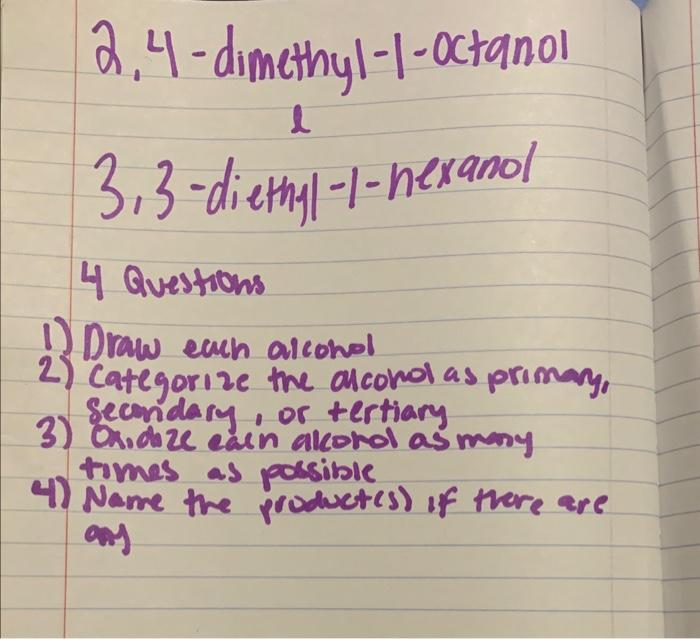 2,4-dimethyl-1-octanol
&
3,3-diethyl-1-hexanol
4 Questions
1) Draw each alcohol
2) Categorize the alcohol as primary,
secondary, or tertiary
3) Oxidize each alcohol as many
times as possible
4) Name the product(s) if there are
any